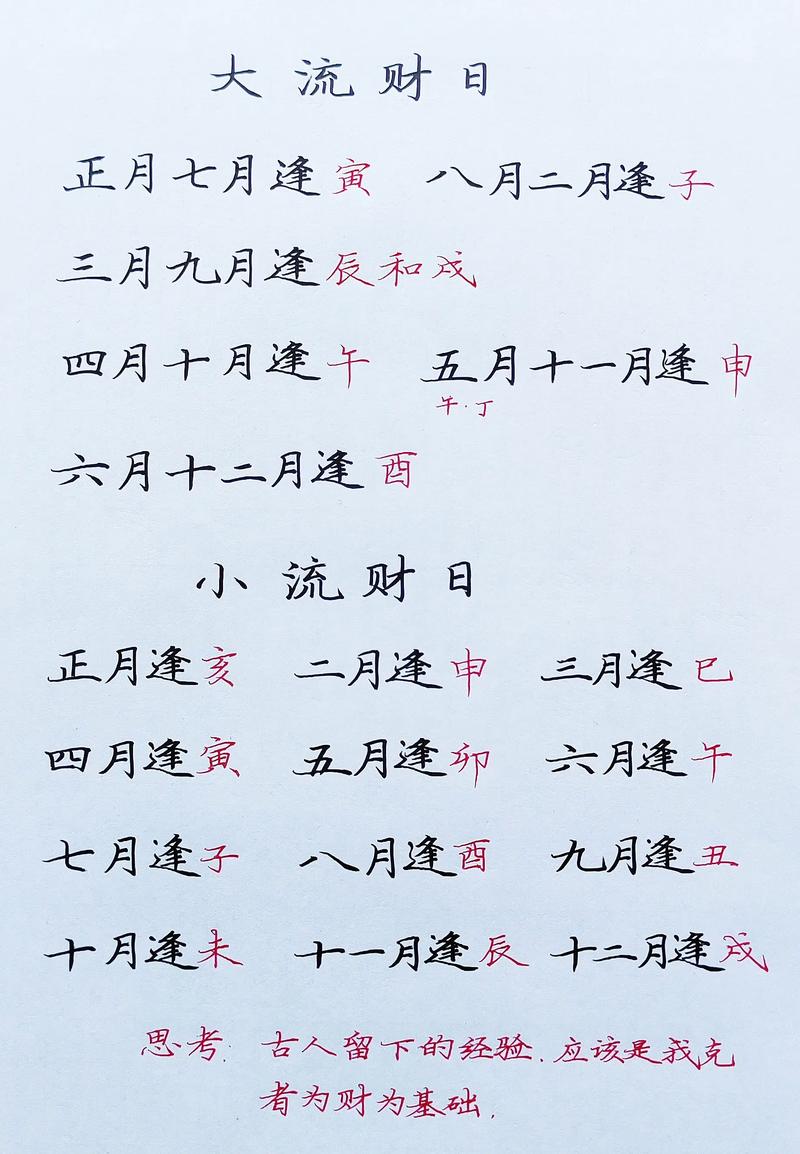 大流财日
正月七月逢寅 八月二月逢子
三月九月逢辰和戍
四月十月逢午 五月十一月逢申
午.丁
六月十二月逢酉
小流财日
正月逢亥 二月逢申 三月逢巳
四月逢寅 五月逢卯 六月逢午
七月逢子 八月逢酉 九月逢丑
十月逢未 十一月逢辰 十二月逢戍
思考. 古人留下的经验.应该是我克
者为财为基础.